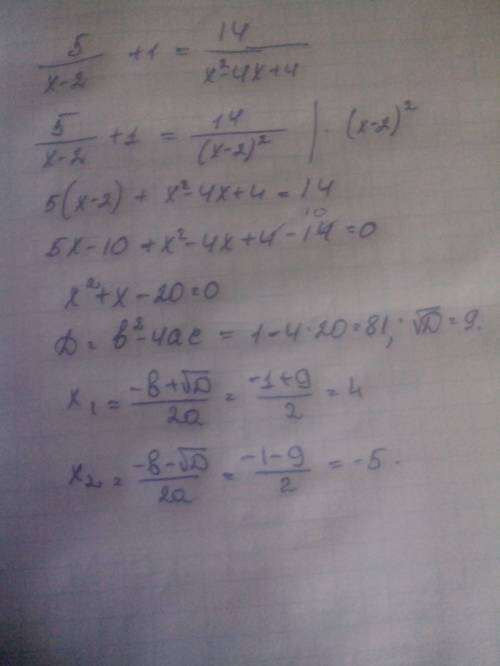 5/(x-2) + 1 = 14/(x²-4x+4)
5/(x-2) + 1 = 14/(x-2)² | · (x-2)²
5(x-2) + x²-4x+4 = 14
5x-10 + x²-4x+4-14=0
10
x²+x-20=0
D = b²-4ac = 1-4·20=81; √D=9.
x₁ = (-b+√D)/2a = (-1+9)/2 = 4
x₂ = (-b-√D)/2a = (-1-9)/2 = -5.